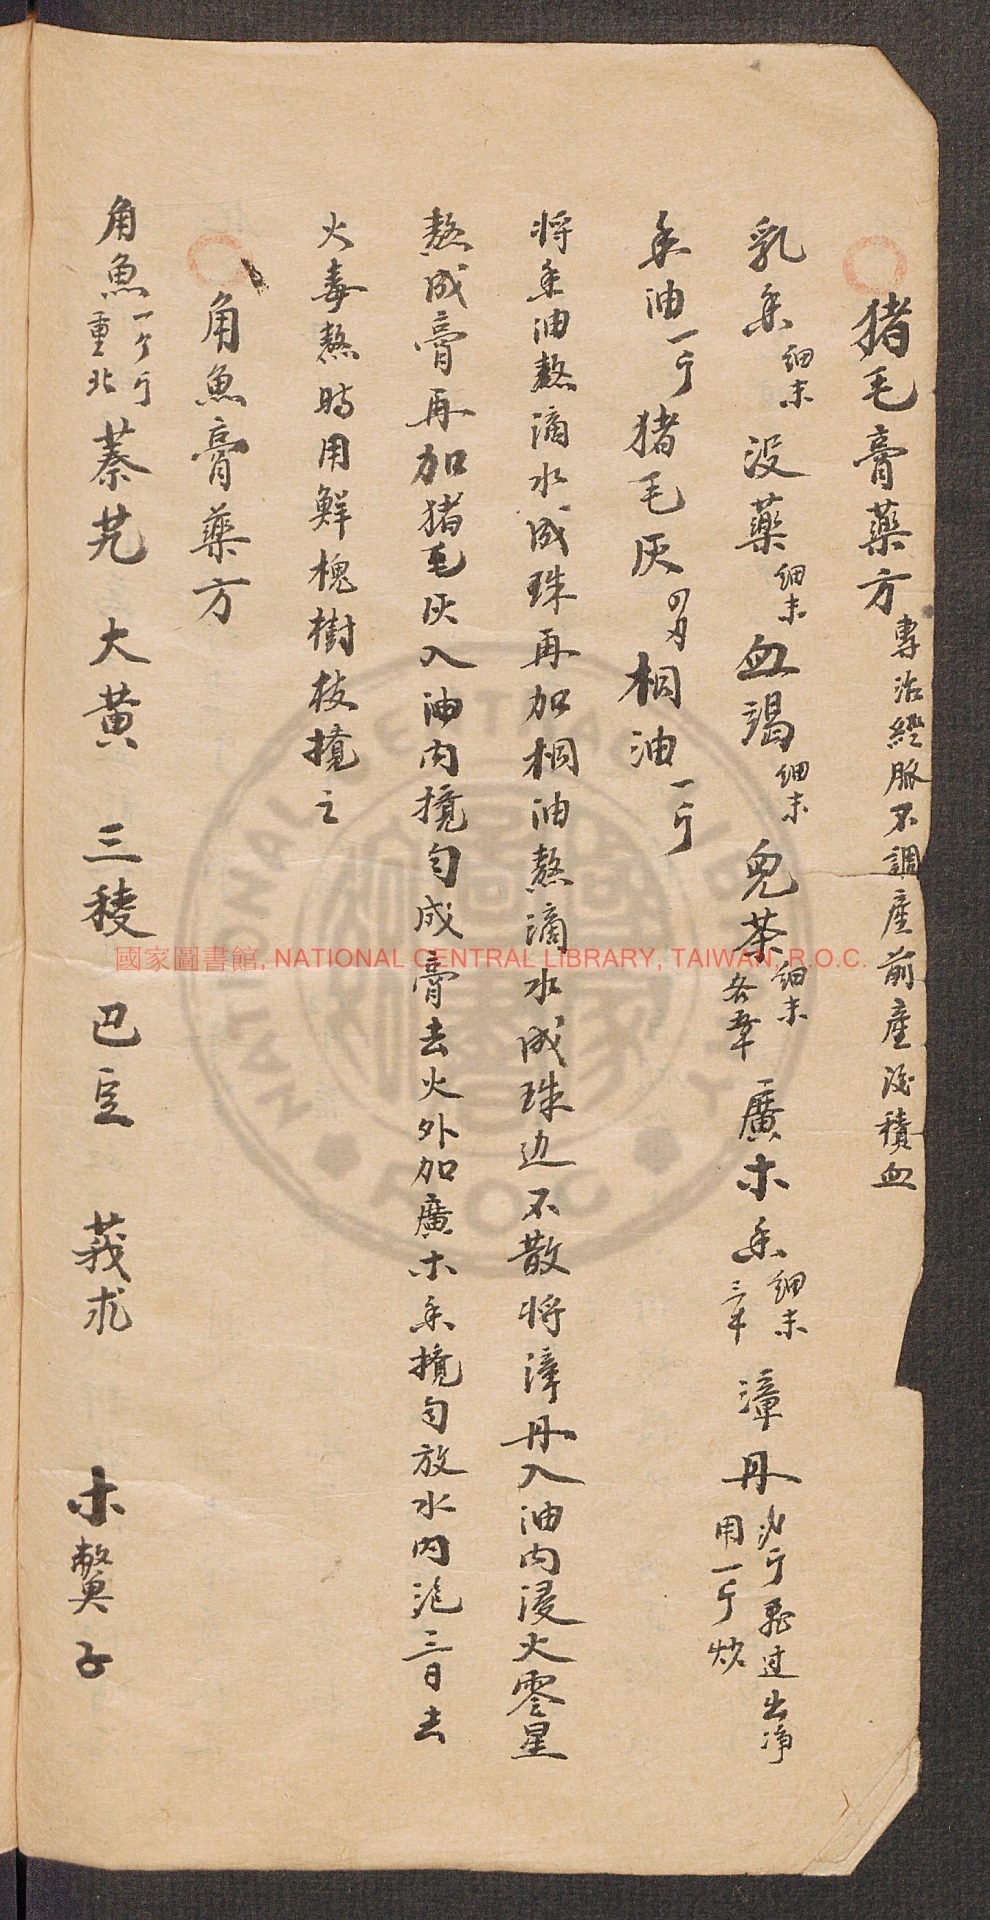 猪毛膏藥方 專治經脉不調産前産後積血
乳香細末 没藥細末 血竭細末 兒茶細末各五 廣木香細末三 漳丹 斤 过 净用一斤炒
香油一斤 猪毛灰四月 桐油一斤
将香油熬滴水成珠再加桐油熬滴水成珠边不散将漳丹入油内浸火零星
熬成膏再加猪毛灰入油内搅匀成膏去火外加廣木香搅匀放水内泡三日去
火毒熬時用鮮槐樹枝搅之
角魚膏藥方
角魚一个重斤 蓁艽 大黄 三稜 巴豆 莪朮 木鱉子
國家圖書館, NATIONAL CENTRAL LIBRARY, TAIWAN, R.O.C.